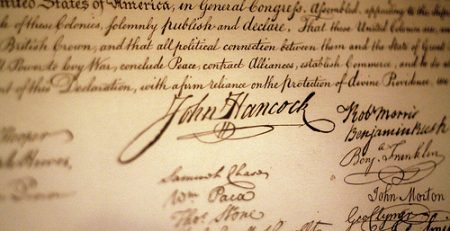 United States of America, in General Congress, Assembled, appealing to the
of these Colonies, solemnly publish and declare, That these United Colonies are,
British Crown, and that all political connection between them and the State of Great
Power to levy War, conclude Peace, contract Alliances, establish Commerce, and to do
of this Declaration, with a firm reliance on the protection of divine Providence, we
John Hancock
Robt Morris
Benjamin Rush
Benja. Franklin
John Morton
Geo Clymer
Hooper
Hewes,
Penn
Samuel Chase
Wm Paca
Thos. Stone